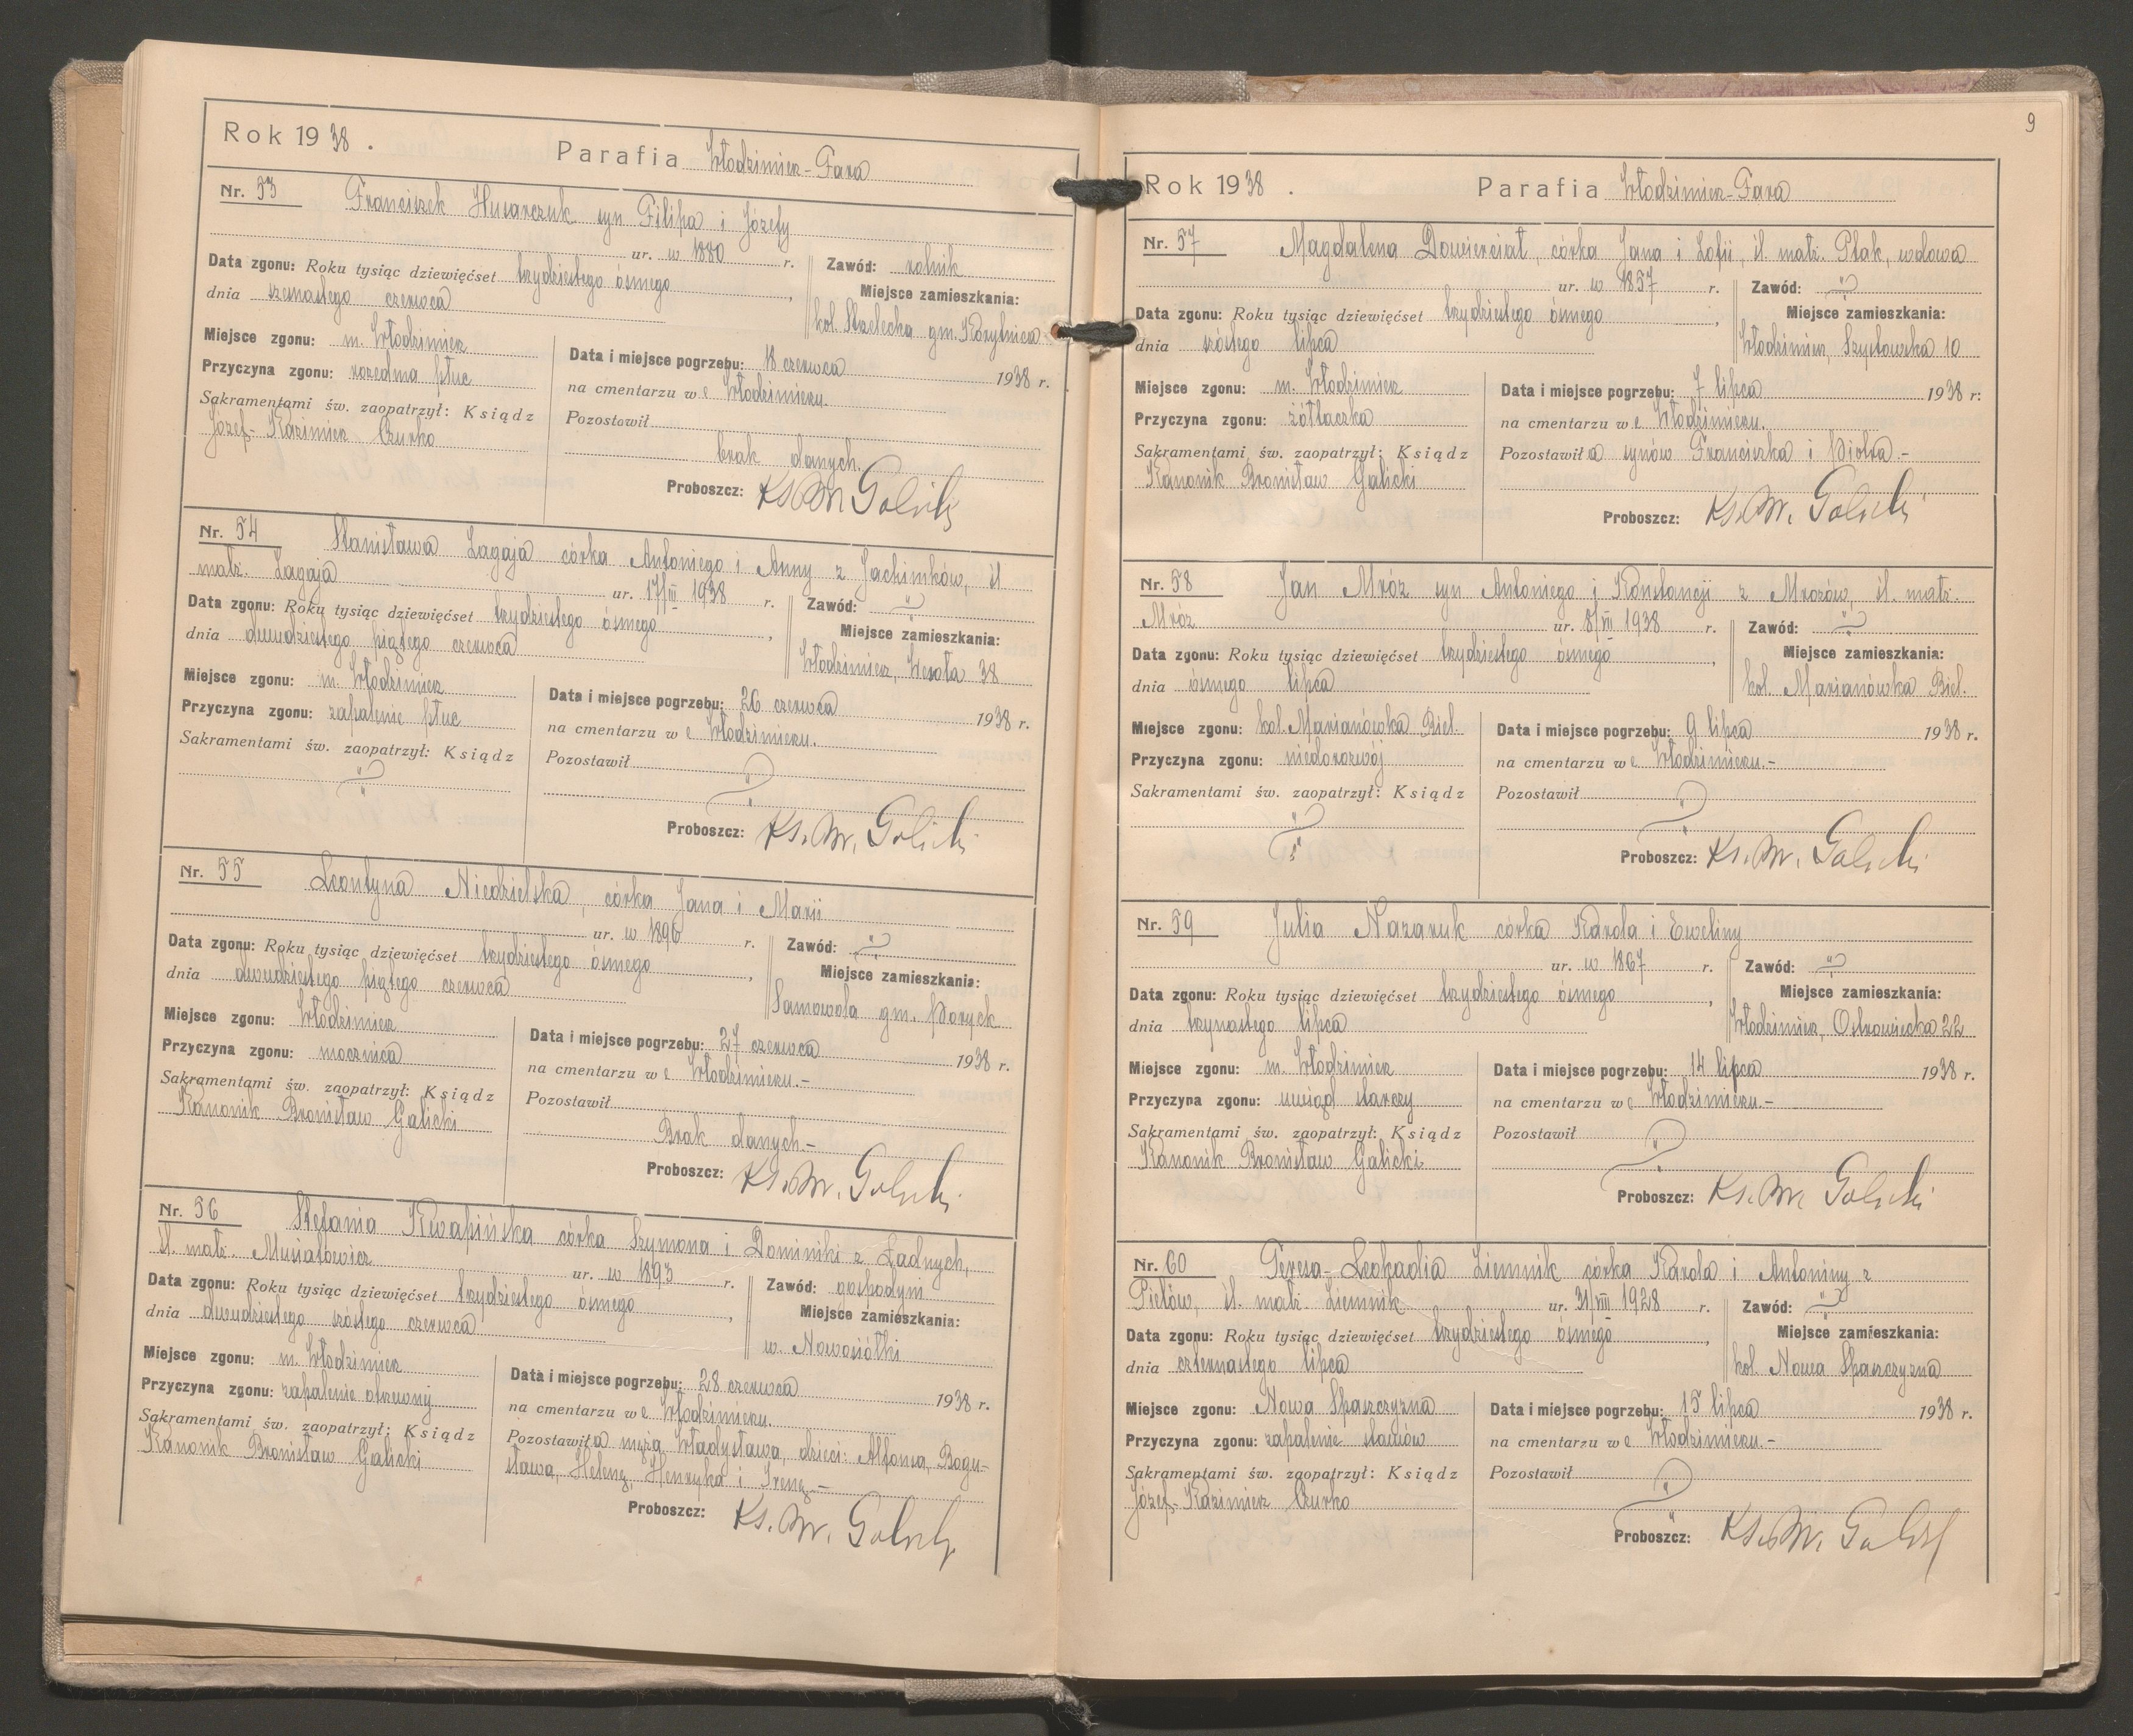 Rok 1938. Parafia Włodzimierz-Fara
Nr. 53 Franciszek Husarczuk syn Filipa i Józefy
ur. w 1880 r.
Zawód: rolnik
Data zgonu: Roku tysiąc dziewięćset trzydziestego ósmego,
dnia szesnastego czerwca
Miejsce zamieszkania:
kol. Strzelecka gm. Korytnica
Miejsce zgonu: m. Włodzimierz
Przyczyna zgonu: rozedma płuc
Sakramentami św. zaopatrzył: Ksiądz
Józef-Kazimierz Czurko
Data i miejsce pogrzebu: 18 czerwca 1938 r.
na cmentarzu we Włodzimierzu.
Pozostawił
brak danych.
Proboszcz: Ks. Br. Galicki
Nr. 54 Stanisława Łagaja córka Antoniego i Anny z Jachimków, śl.
małż. Łagaja ur. 17/III 1938 r.
Zawód:
Data zgonu: Roku tysiąc dziewięćset trzydziestego ósmego,
dnia dwudziestego piątego czerwca
Miejsce zamieszkania:
Włodzimierz, Wesoła 38
Miejsce zgonu: m. Włodzimierz
Przyczyna zgonu: zapalenie płuc
Sakramentami św. zaopatrzył: Ksiądz
Data i miejsce pogrzebu: 26 czerwca 1938 r.
na cmentarzu we Włodzimierzu.
Pozostawił
Proboszcz: Ks. Br. Galicki
Nr. 55 Leontyna Niedzielska, córka Jana i Marii
ur. w 1896 r.
Zawód:
Data zgonu: Roku tysiąc dziewięćset trzydziestego ósmego,
dnia dwudziestego piątego czerwca
Miejsce zamieszkania:
Samowola gm. Poryck
Miejsce zgonu: Włodzimierz
Przyczyna zgonu: mocznica
Sakramentami św. zaopatrzył: Ksiądz
Kanonik Bronisław Galicki
Data i miejsce pogrzebu: 27 czerwca 1938 r.
na cmentarzu we Włodzimierzu.-
Pozostawił
Brak danych.-
Proboszcz: Ks. Br. Galicki
Nr. 56 Stefania Kwapińska córka Szymona i Dominiki z Ładnych,
śl. małż. Musiałowicz ur. w 1893 r.
Zawód: gospodyni
Data zgonu: Roku tysiąc dziewięćset trzydziestego ósmego,
dnia dwudziestego szóstego czerwca
Miejsce zamieszkania:
w. Nowosiółki
Miejsce zgonu: m. Włodzimierz
Przyczyna zgonu: zapalenie otrzewnej
Sakramentami św. zaopatrzył: Ksiądz
Kanonik Bronisław Galicki
Data i miejsce pogrzebu: 28 czerwca 1938 r.
na cmentarzu we Włodzimierzu.
Pozostawiła męża Władysława, dzieci: Alfonsa, Bogu-
sława, Helenę, Henryka i Irenę.-
Proboszcz: Ks. Br. Galicki
9
Rok 1938. Parafia Włodzimierz-Fara
Nr. 57 Magdalena Dowierciał, córka Jana i Zofii, śl. małż. Ptak, wdowa
ur. w 1857 r.
Zawód:
Data zgonu: Roku tysiąc dziewięćset trzydziestego ósmego,
dnia szóstego lipca
Miejsce zamieszkania:
Włodzimierz, Szpitalna 10
Miejsce zgonu: m. Włodzimierz
Przyczyna zgonu: żółtaczka
Sakramentami św. zaopatrzył: Ksiądz
Kanonik Bronisław Galicki
Data i miejsce pogrzebu: 7 lipca 1938 r.
na cmentarzu we Włodzimierzu.
Pozostawiła synów Franciszka i Piotra.-
Proboszcz: Ks. Br. Galicki
Nr. 58 Jan Mróz syn Antoniego i Konstancji z Mrozów, śl. małż.
Mróz ur. 8/VII 1938 r.
Zawód:
Data zgonu: Roku tysiąc dziewięćset trzydziestego ósmego,
dnia ósmego lipca
Miejsce zamieszkania:
kol. Marianówka Biel.
Miejsce zgonu: kol. Marianówka Biel.
Przyczyna zgonu: niedorozwój
Sakramentami św. zaopatrzył: Ksiądz
Data i miejsce pogrzebu: 9 lipca 1938 r.
na cmentarzu we Włodzimierzu.-
Pozostawił
Proboszcz: Ks. Br. Galicki
Nr. 59 Julia Nazaruk córka Karola i Eweliny
ur. w 1867 r.
Zawód:
Data zgonu: Roku tysiąc dziewięćset trzydziestego ósmego,
dnia trzynastego lipca
Miejsce zamieszkania:
Włodzimierz, Ostrowiecka 22
Miejsce zgonu: m. Włodzimierz
Przyczyna zgonu: uwiąd starczy
Sakramentami św. zaopatrzył: Ksiądz
Kanonik Bronisław Galicki
Data i miejsce pogrzebu: 14 lipca 1938 r.
na cmentarzu we Włodzimierzu.-
Pozostawił
Proboszcz: Ks. Br. Galicki
Nr. 60 Teresa-Leokadia Ziemnik córka Karola i Antoniny z
Pielów, śl. małż. Ziemnik ur. 31/VIII 1928 r.
Zawód:
Data zgonu: Roku tysiąc dziewięćset trzydziestego ósmego,
dnia czternastego lipca
Miejsce zamieszkania:
kol. Nowa Spaszczyzna
Miejsce zgonu: Nowa Spaszczyzna
Przyczyna zgonu: zapalenie stawów
Sakramentami św. zaopatrzył: Ksiądz
Józef-Kazimierz Czurko
Data i miejsce pogrzebu: 15 lipca 1938 r.
na cmentarzu we Włodzimierzu.-
Pozostawił
Proboszcz: Ks. Br. Galicki